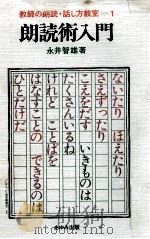 教師の朗読・話し方教室―1
朗読術入門
永井智雄著
ないたり ほえたり
さえずったり
こえをだす いきものは
たくさんいるね
けれど ことばを
はなすことの できるのは
ひとだけだ
あゆみ出版